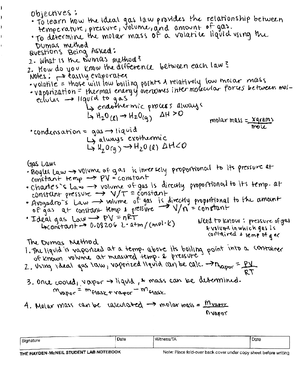 Objectives:
• To learn how the ideal gas law provides the relationship between
temperature, pressure, volume, and amount of gas.
• To determine the molar mass of a volatile liquid using the
Dumas method
Questions Being Asked:
1. What is the Dumas method?
2. How do you know the difference between each law?
Notes: → easily evaporates
• volatile = those with low boiling points & relatively low molar mass
• vaporization = thermal energy overcomes intermolecular forces between mol-
ecules → liquid to gas
↳ endothermic process always
↳ H₂O(l) → H₂O(g) ΔH>0
molar mass = xgrams/mole
• condensation = gas → liquid
↳ always exothermic
↳ H₂O(g) → H₂O(l) ΔH<0
Gas Laws
• Boyles Law → volume of gas is inversely proportional to its pressure at
constant temp → PV = constant
• Charles's Law → volume of gas is directly proportional to its temp. at
constant pressure → V/T = constant
• Avogadro's Law → volume of gas is directly proportional to the amount
of gas at constant temp & pressure → V/n = constant
• Ideal gas Law → PV = nRT
↳ constant → 0.08206 L·atm/(mol·K)
Need to know: pressure of gas
& volume in which gas is
contained & temp of gas
The Dumas Method
1. The liquid is vaporized at a temp. above its boiling point into a container
of known volume at measured temp. & pressure
2. Using ideal gas law, vaporized liquid can be calc. → n vapor = PV/RT
3. Once cooled, vapor → liquid, & mass can be determined.
m vapor = m flask + vapor − m flask
4. Molar mass can be calculated → molar mass = m vapor / n vapor
Signature Date Witness/TA Date
THE HAYDEN-McNEIL STUDENT LAB NOTEBOOK Note: Place fold-over back cover under copy sheet before writing